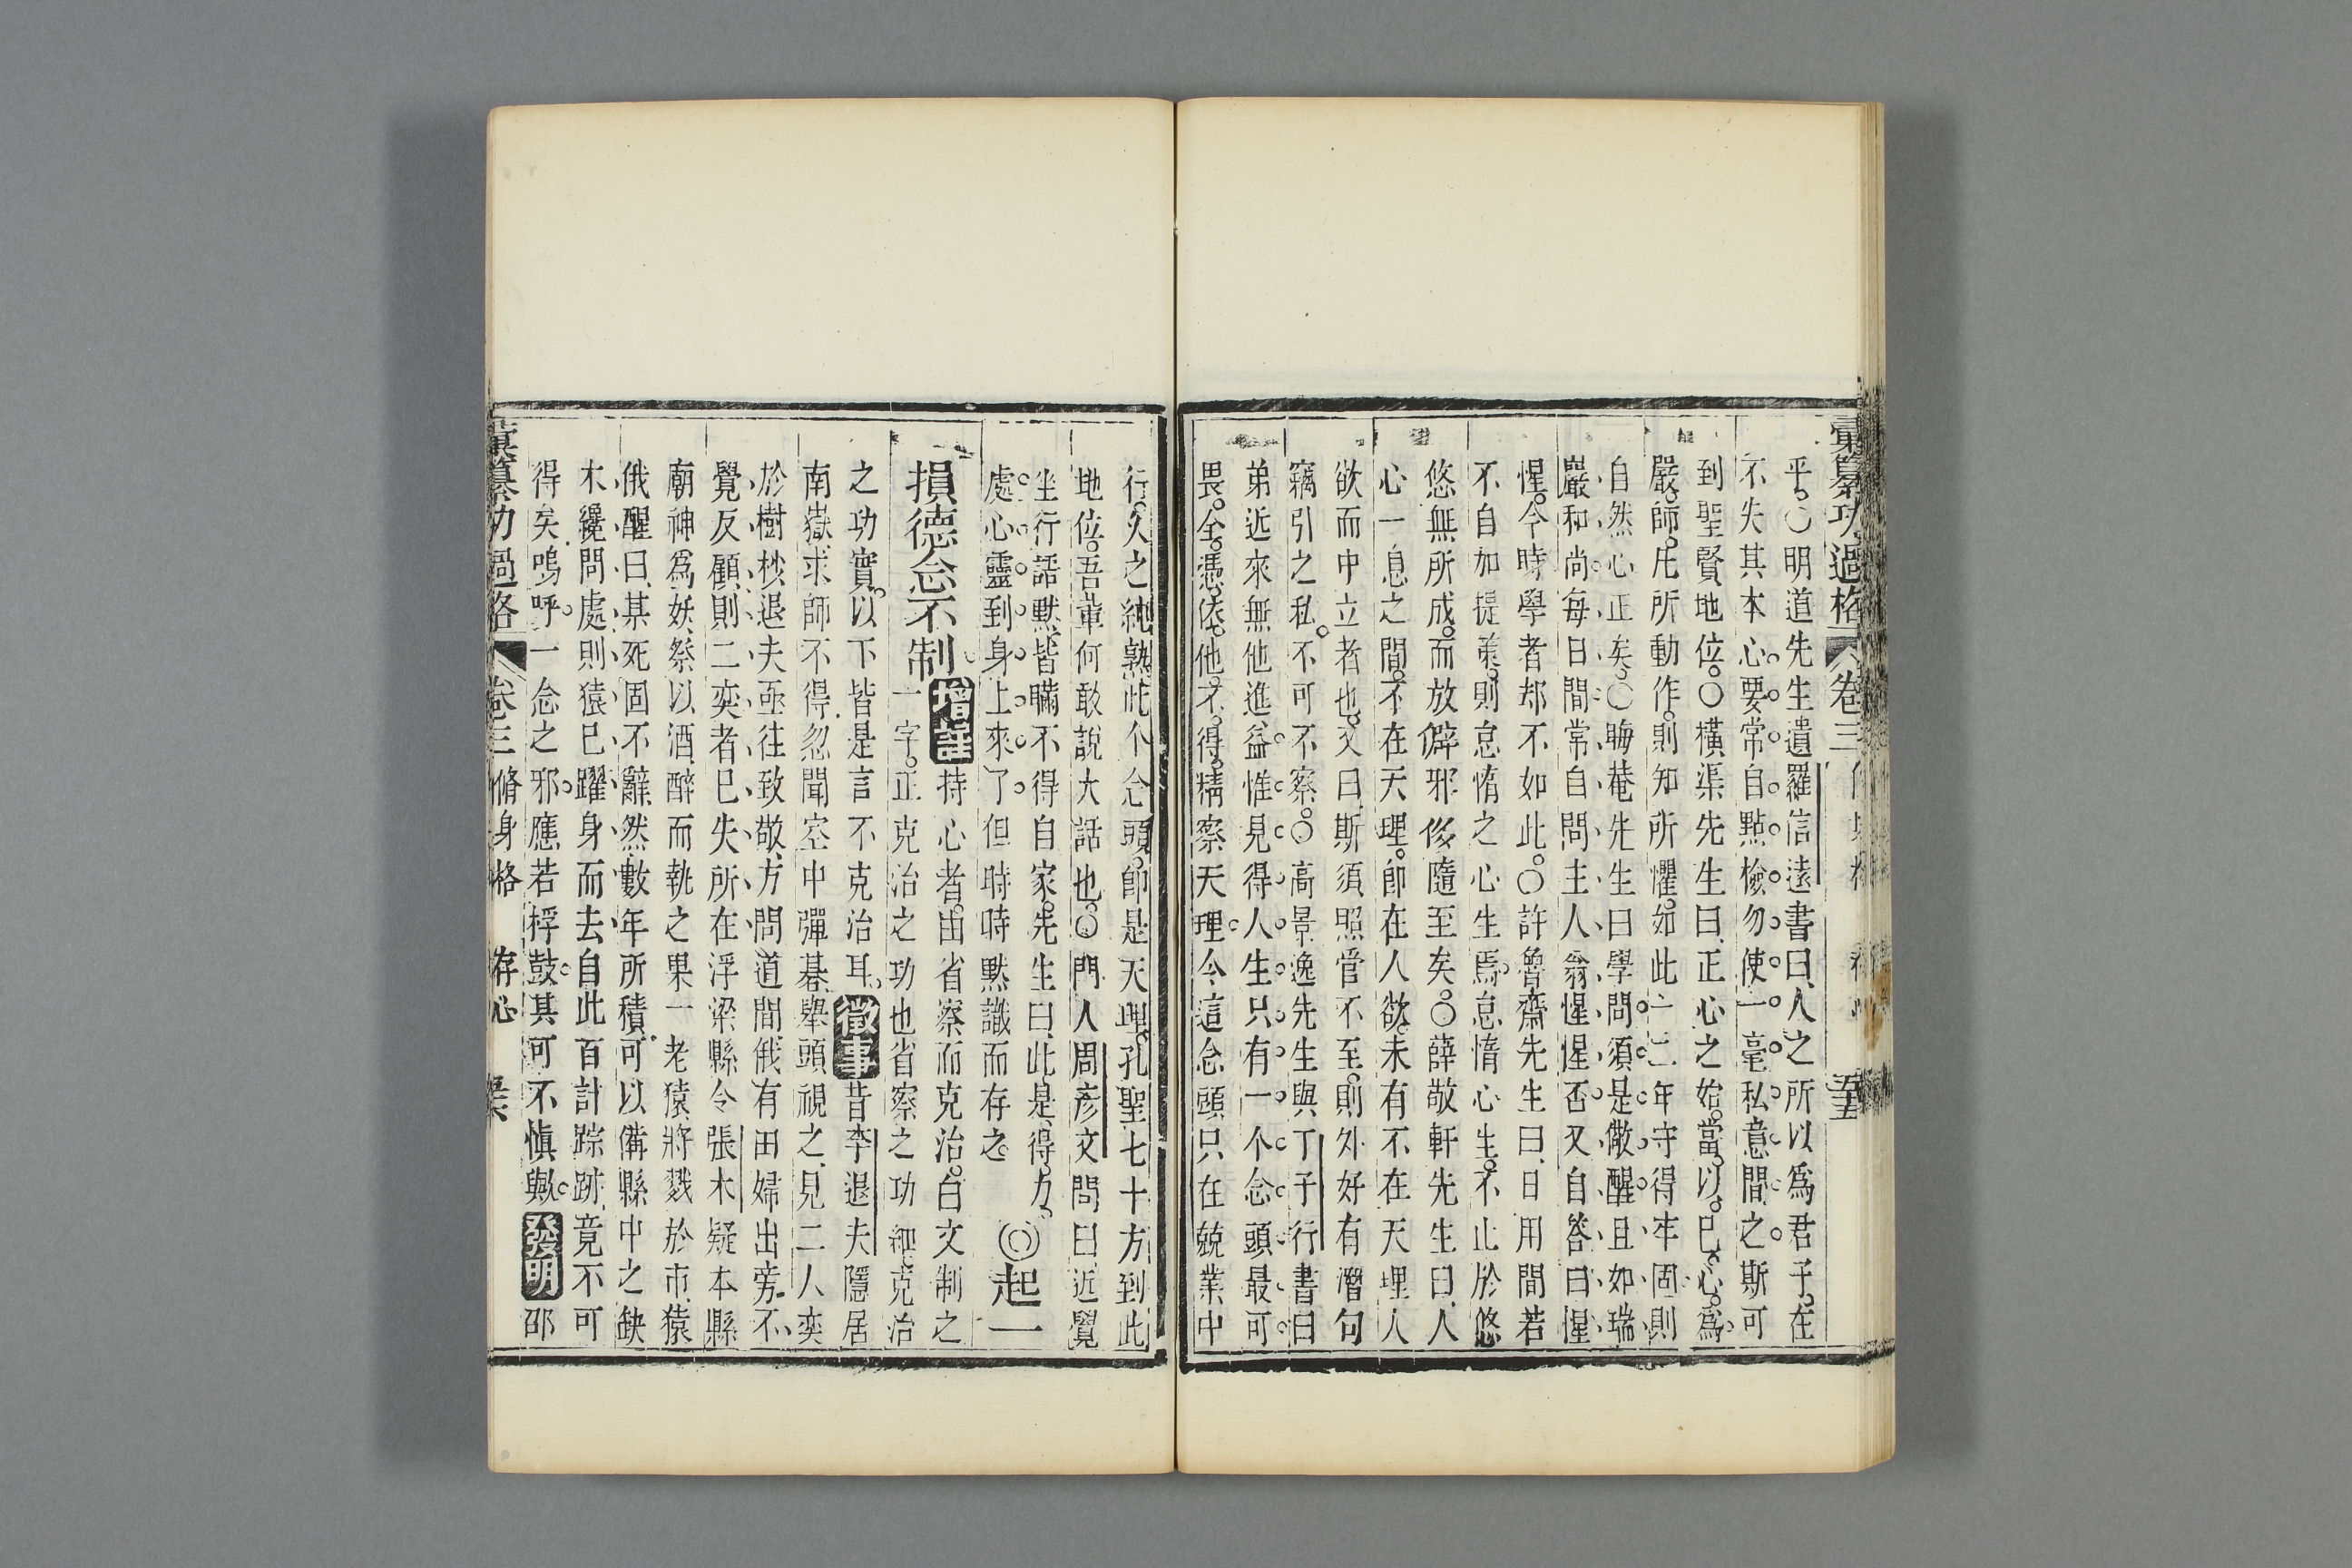 彙纂功過格 卷三 五五
乎○明道先生遺羅信遠書曰人之所以爲君子在
不失其本心要常自點檢勿使一毫私意間之斯可
到聖賢地位○橫渠先生曰正心之始當以已心爲
嚴師凡所動作則知所懼如此一二年守得牢固則
自然心正矣○晦菴先生曰學問須是儆醒且如瑞
嚴和尚每日間常自問主人翁惺惺否又自答曰惺
惺今時學者却不如此○許魯齋先生曰日用間若
不自加提策則怠惰之心生焉怠惰心生不止於悠
悠無所成而放僻邪侈隨至矣○薛敬軒先生曰人
心一息之間不在天理卽在人欲未有不在天理人
欲而中立者也又曰斯須照管不至則外好有潛勾
竊引之私不可不察○高景逸先生與丁子行書曰
弟近來無他進益惟見得人生只有一个念頭最可
畏全憑依他不得精察天理令這念頭只在兢業中
行久之純熟此个念頭卽是天理孔聖七十方到此
地位吾輩何敢說大話也○門人周彦文問曰近覺
坐行話默皆瞞不得自家先生曰此是得力
處心靈到身上來了但時時默識而存之 ◎起一
損德念不制 增註 持心者由省察而克治白文制之
一字正克治之功也省察之功細克治
之功實以下皆是言不克治耳 徵事 昔李退夫隱居
南嶽求師不得忽聞空中彈碁舉頭視之見二人奕
於樹杪退夫亟往致敬方問道間俄有田婦出旁不
覺反顧則二奕者已失所在浮梁縣令張木疑本縣
廟神爲妖祭以酒醉而執之果一老猿將戮於市猿
俄醒曰某死固不辭然數年所積可以備縣中之缺
木纔問處則猿已躍身而去自此百計踪跡竟不可
得矣嗚呼一念之邪應若桴鼓其可不愼歟 發明 邵
彙纂功過格 卷三 脩身格 存心